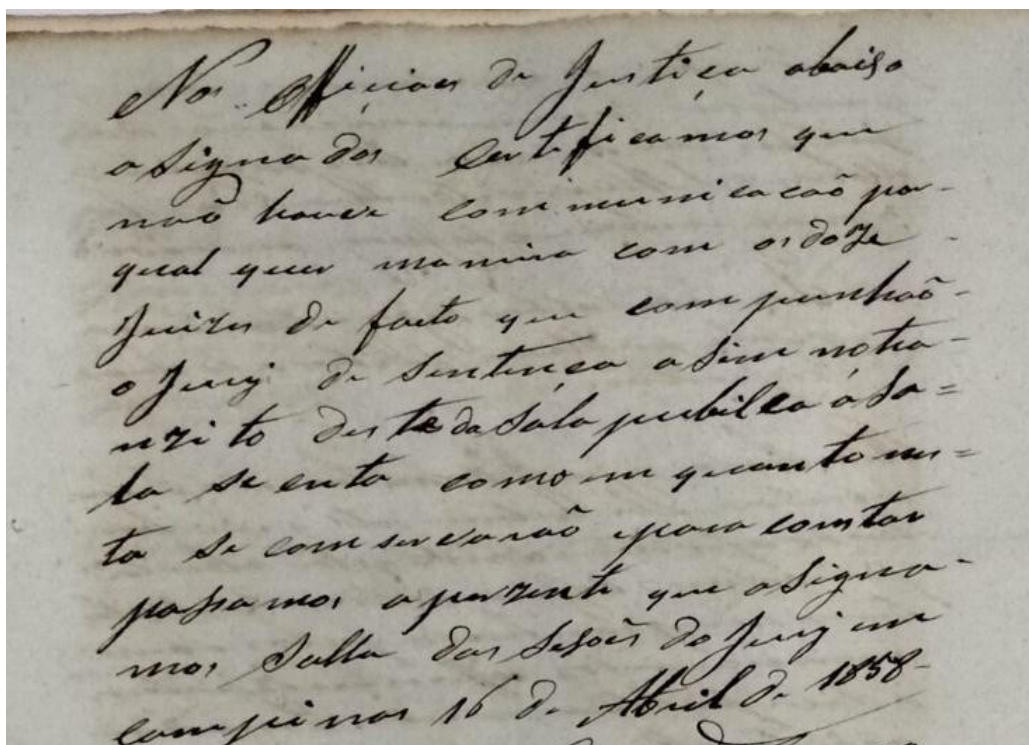 Nos Officiaes de Justiça abaiso
asignados Certificamos que
naõ haver communicacaõ por
qual quer manira com os doze
Juizes de facto que compunhaõ
o Jury de Sentença asim no tra-
nzito deste da Sala publica á Sa=
la secreta como em quanto nes=
ta se comservaraõ e para comstar
pasamos aprezente que asigna-
mos Salla das Sesoẽs do Jury em
Campinas 16 de Abril de 1858